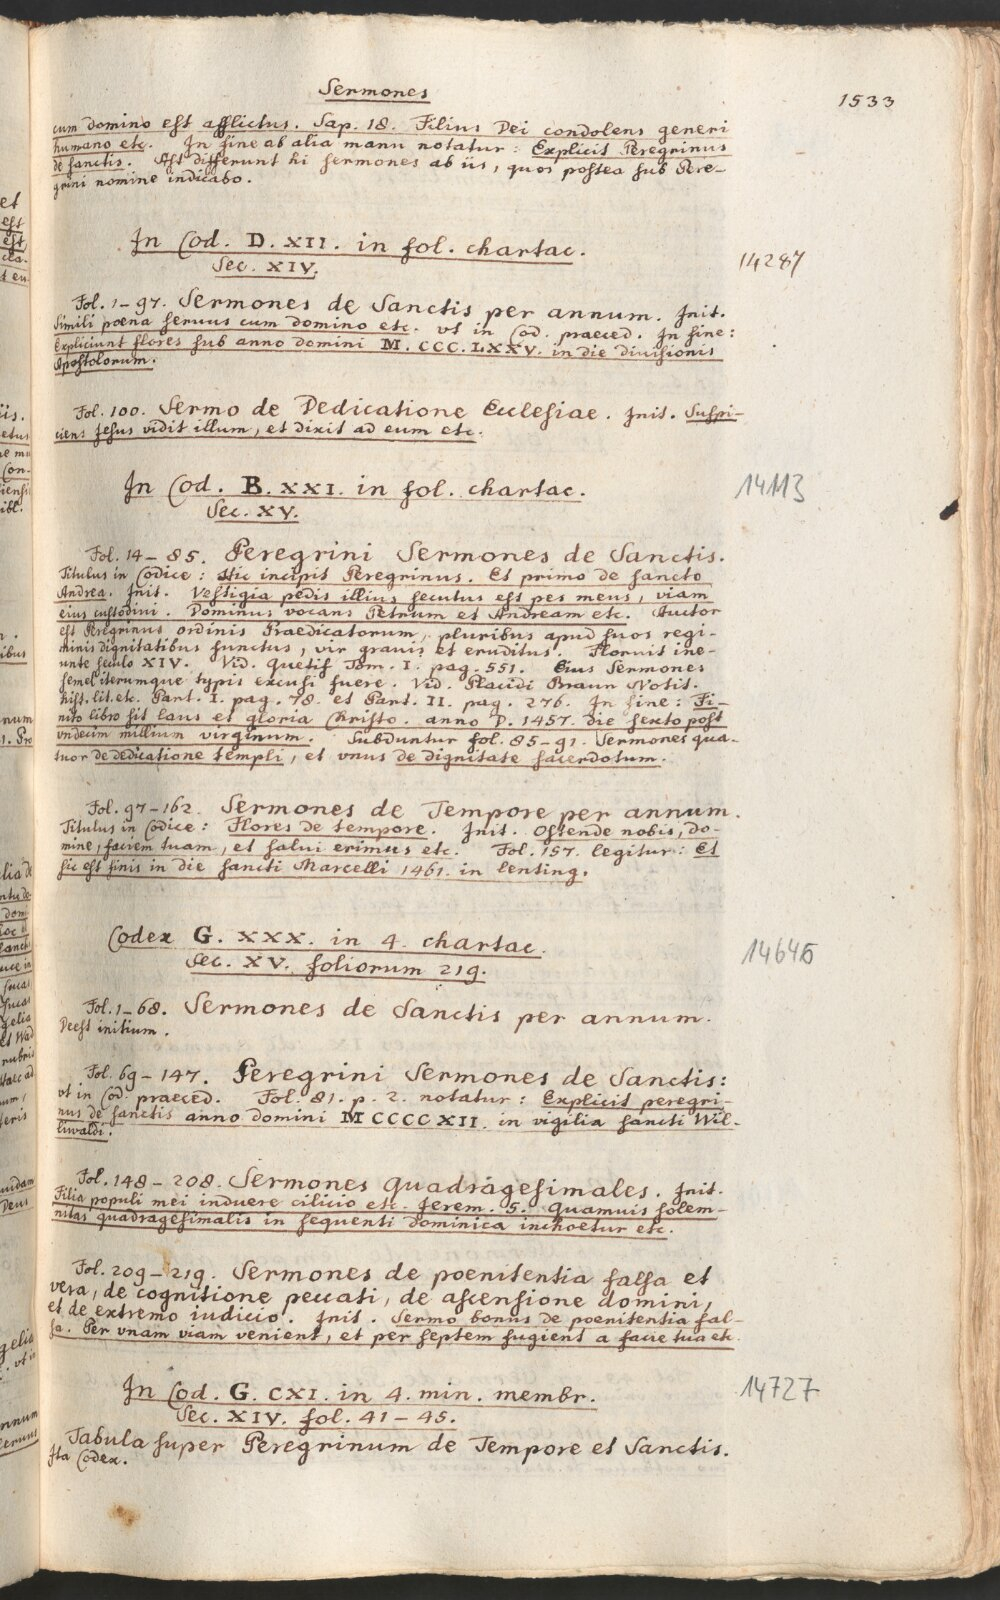 Sermones
1533
cum domino est afflictus. Sap. 18. Filius Dei condolens generi
humano etc. In fine ab alia manu notatur: Explicit Peregrinus
de sanctis. Ast differunt hi sermones ab iis, quos postea sub Pere-
grini nomine indicabo.
In Cod. D. XII. in fol. chartac.
14287
Sec. XIV.
Fol. 1-97. Sermones de Sanctis per annum. Init.
Simili poena seruus cum domino etc. vt in Cod. praeced. In fine:
Expliciunt flores sub anno domini M. CCC. LXXV. in die diuisionis
Apostolorum.
Fol. 100. Sermo de Dedicatione Ecclesiae. Init. Suspi-
ciens Jesus vidit illum, et dixit ad eum etc.
In Cod. B. XXI. in fol. chartac.
14113
Sec. XV.
Fol. 14-85. Peregrini Sermones de Sanctis.
Titulus in Codice: Hic incipit Peregrinus. Et primo de sancto
Andrea. Init. Vestigia pedis illius secutus est pes meus, viam
eius custodiui. Dominus vocans Petrum et Andream etc. Auctor
est Peregrinus ordinis Praedicatorum, pluribus apud suos regi-
minis dignitatibus functus, vir grauis et eruditus. Floruit ine-
unte seculo XIV. Vid. Quetif Tom. I. pag. 551. Eius Sermones
semel iterumque typis excusi fuere. Vid. Placidi Braun Notit.
hist. lit. etc. Part. I. pag. 78. et Part. II. pag. 276. In fine: Fi-
nito libro sit laus et gloria Christo. anno D. 1457. die sexto post
vndecim millium virginum. Subduntur fol. 85-91. Sermones qua-
tuor de dedicatione templi, et vnus de dignitate sacerdotum.
Fol. 97-162. Sermones de Tempore per annum.
Titulus in Codice: Flores de tempore. Init. Ostende nobis, do-
mine, faciem tuam, et salui erimus etc. Fol. 157. legitur: Et
sic est finis in die sancti Marcelli 1461. in lenting.
Codex G. XXX. in 4. chartac.
Sec. XV. foliorum 219.
Fol. 1-68. Sermones de Sanctis per annum.
Deest initium.
Fol. 69-147. Peregrini Sermones de Sanctis:
vt in Cod. praeced. Fol. 81. p. 2. notatur: Explicit peregri-
nus de sanctis anno domini MCCCCXII. in vigilia sancti Wil-
liwaldi.
Fol. 148-208. Sermones quadragesimales. Init.
Filia populi mei induere cilicio etc. Jerem. 5. Quamuis solem-
nitas quadragesimalis in sequenti dominica inchoetur etc.
Fol. 209-219. Sermones de poenitentia falsa et
vera, de cognitione peccati, de ascensione domini,
et de extremo iudicio. Init. Sermo bonus de poenitentia fal-
sa. Per vnam viam venient, et per septem fugient a facie tua etc.
In Cod. G. CXI. in 4. min. membr.
14727
Sec. XIV. fol. 41-45.
Tabula super Peregrinum de Tempore et Sanctis.
Ita Codex.